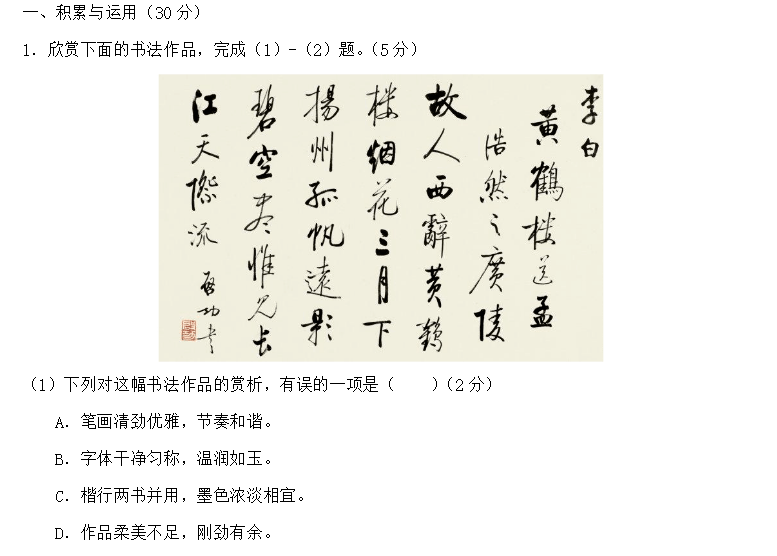 一、积累与运用（30分）
1．欣赏下面的书法作品，完成（1）-（2）题。（5分）
李白
黄鹤楼送孟
浩然之廣陵
故人西辭黄鹤
楼烟花三月下
揚州孤帆遠影
碧空尽惟见长
江天際流
启功书
（1）下列对这幅书法作品的赏析，有误的一项是（　　）（2分）
A．笔画清劲优雅，节奏和谐。
B．字体干净匀称，温润如玉。
C．楷行两书并用，墨色浓淡相宜。
D．作品柔美不足，刚劲有余。